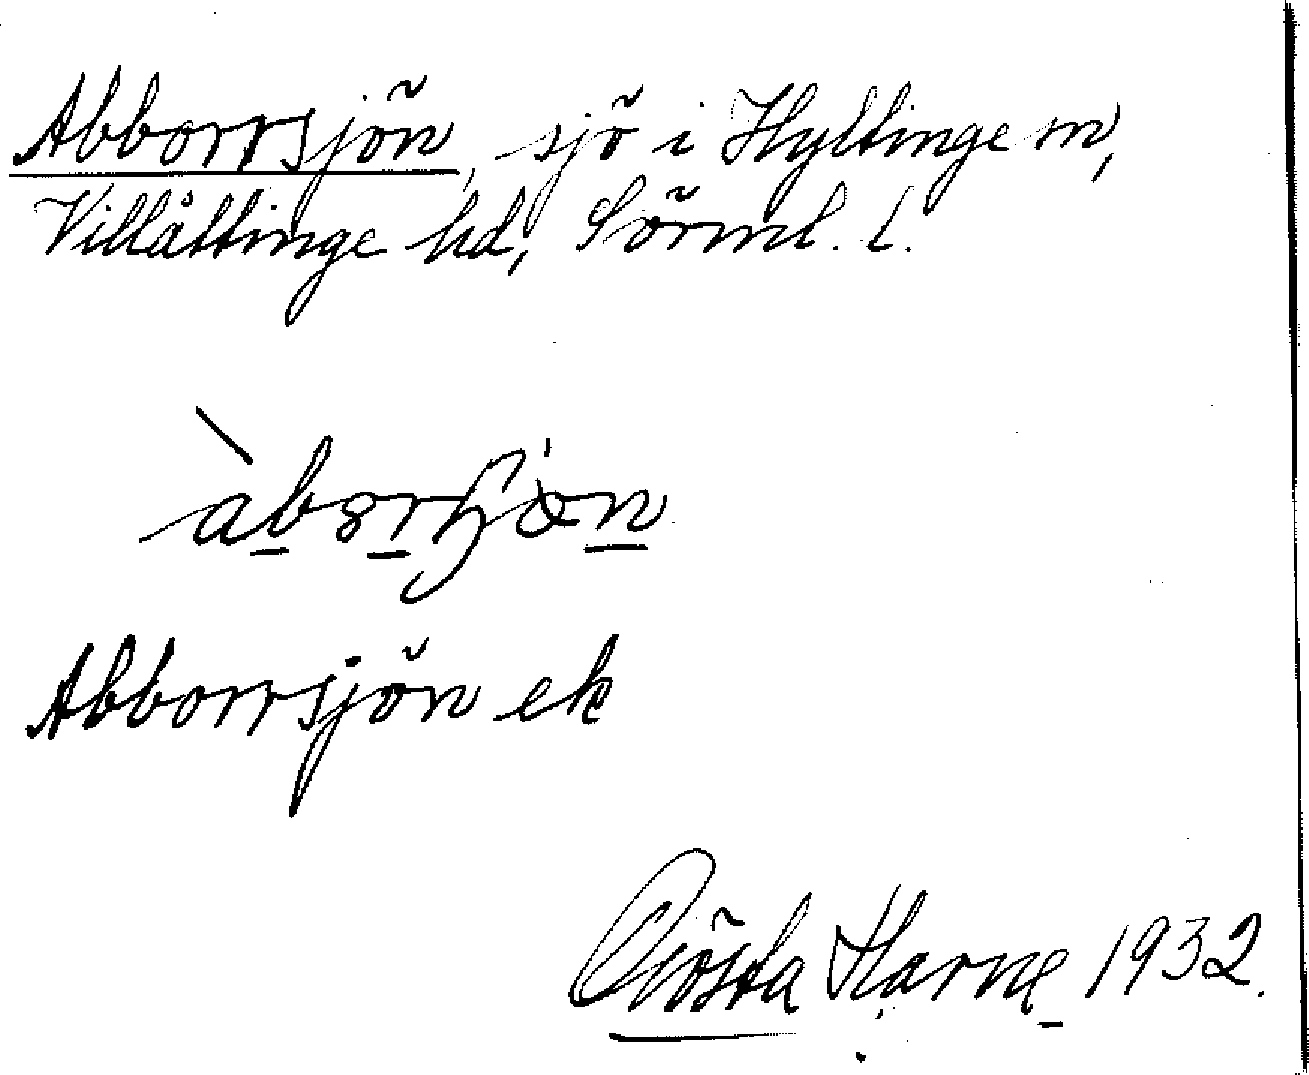 Abborrsjön, sjö i Hyltinge sn,
Villåttinge hd, Sörml. l.
Abborrsjön ek
Gösta Harne 1932.